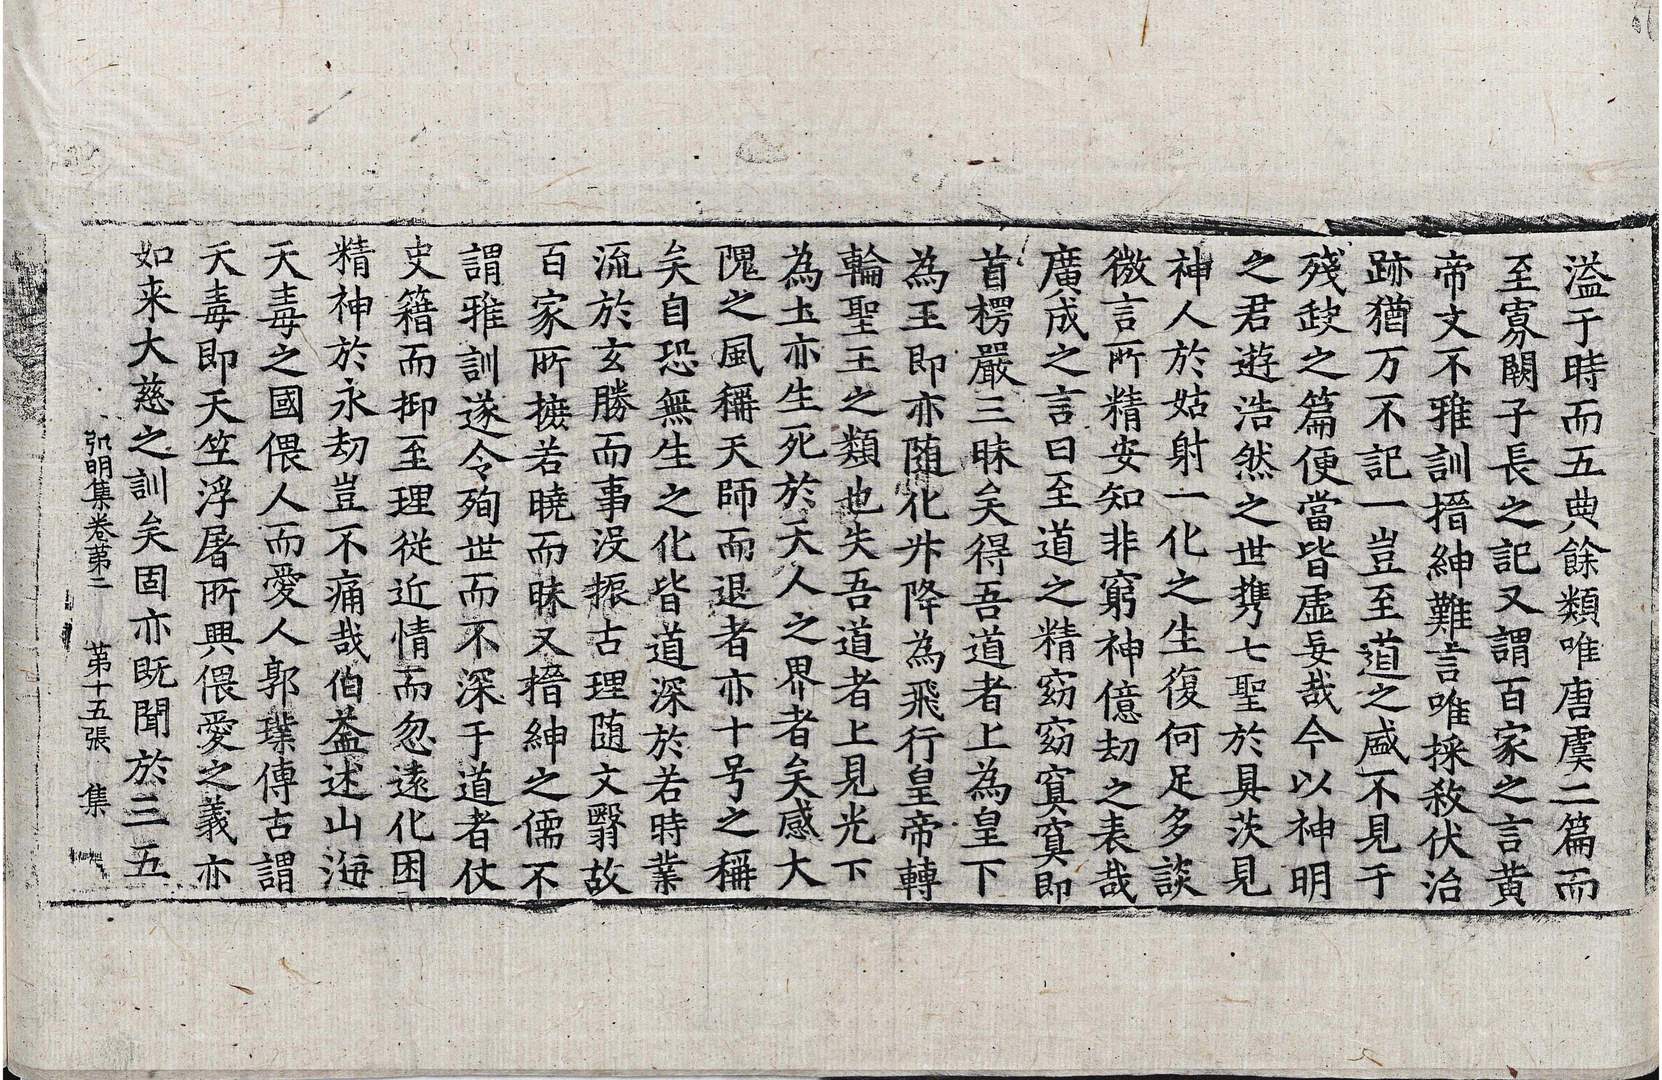 溢于時而五典餘類唯唐虞二篇而
至寡闕子長之記又謂百家之言黃
帝文不雅訓搢紳難言唯採殺伏治
跡猶万不記一豈至道之盛不見于
殘缺之篇便當皆虛妄哉今以神明
之君遊浩然之世携七聖於具茨見
神人於姑射一化之生復何足多談
微言所精安知非窮神億劫之表哉
廣成之言曰至道之精窈窈冥冥即
首楞嚴三昧矣得吾道者上為皇下
為王即亦随化升降為飛行皇帝轉
輪聖王之類也失吾道者上見光下
為土亦生死於天人之界者矣感大
隗之風稱天師而退者亦十号之稱
矣自恐無生之化皆道深於若時業
流於玄勝而事没振古理随文翳故
百家所摭若曉而昧又搢紳之儒不
謂雅訓遂令殉世而不深于道者仗
史籍而抑至理從近情而忽遠化困
精神於永劫豈不痛哉伯益述山海
天毒之國偎人而愛人郭璞傳古謂
天毒即天笁浮屠所興偎愛之義亦
如来大慈之訓矣固亦既聞於三五
弘明集卷第二 第十五張 集